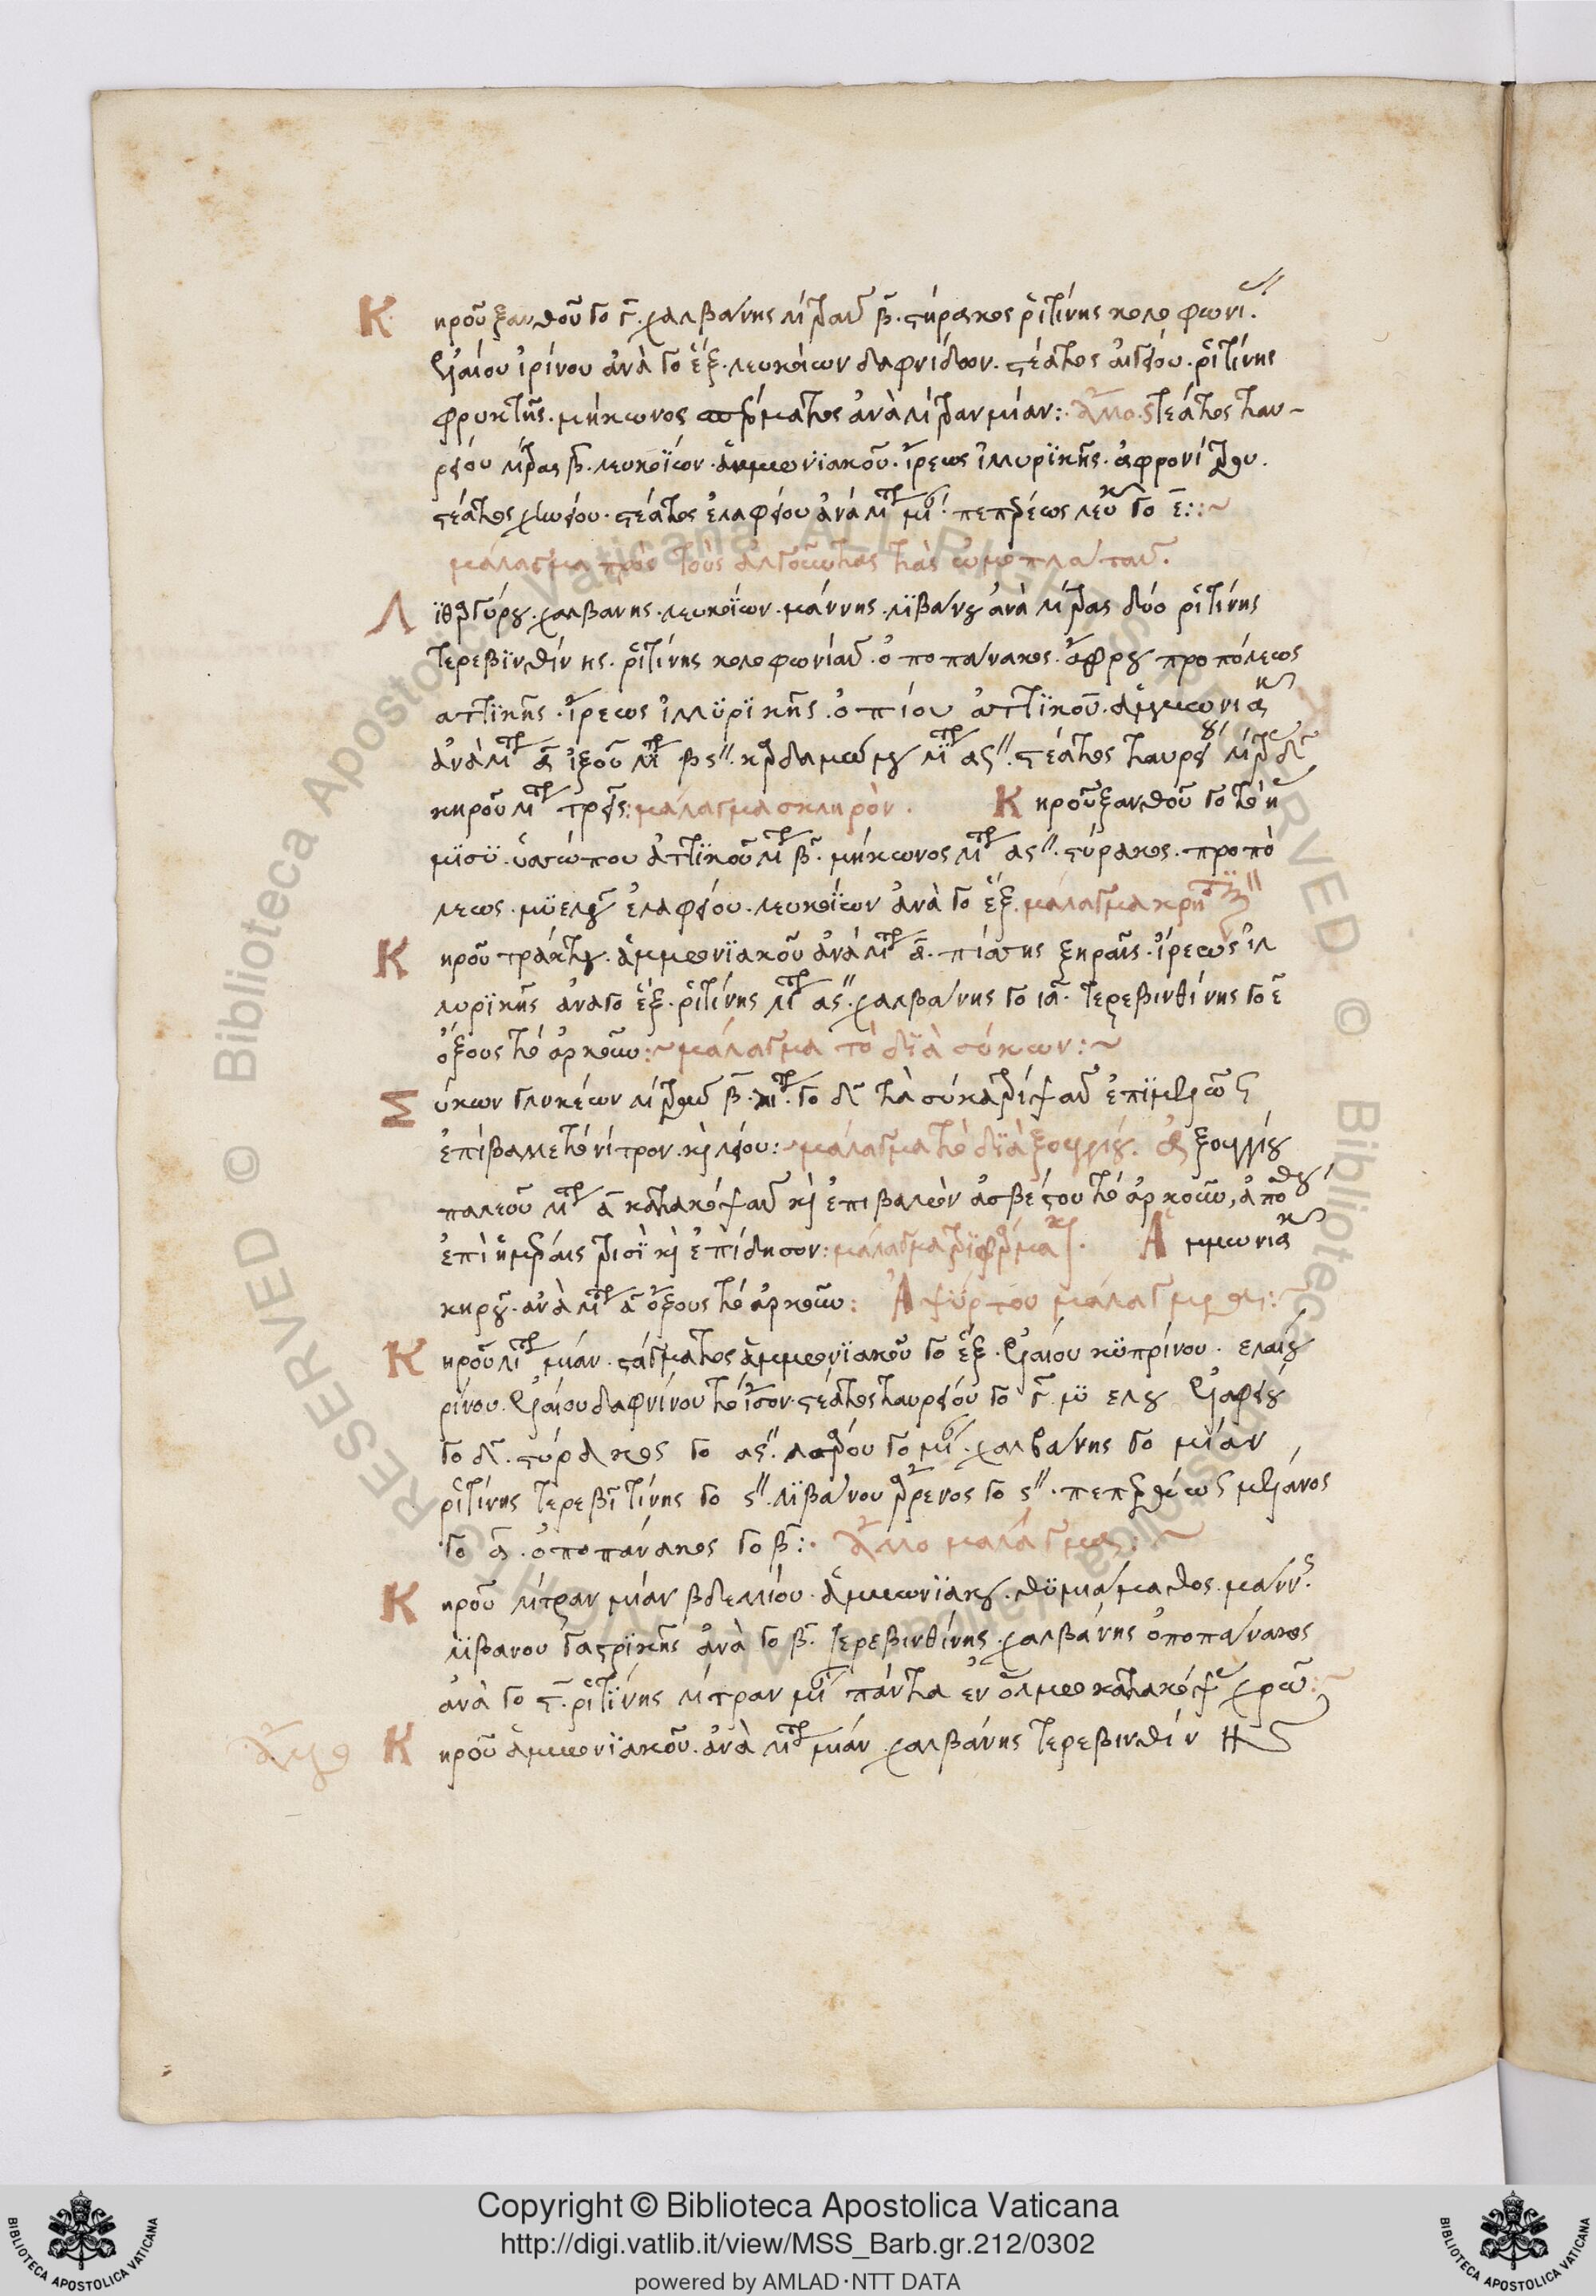 Κ ηροῦ ξανθοῦ γο γ̅. χαλβάνης λίτραν β̅. στύρακος ῥητίνης κολοφωνί.
ἐλαίου ἰρίνου ἀνὰ γο ἕξ. λευκοΐων δαφνίδων. στέατος αἰγείου. ῥητίνης
φρυκτῆς. μήκωνος σπέρματος ἀνὰ λίτραν μίαν:. ἄλλο. στέατος ταυ-
ρείου λίτρας β̅. λευκοΐων. ἀμμωνϊακοῦ. ἴρεως ἰλλυρϊκῆς. ἀφρονίτρου.
στέατος χηνείου. στέατος ἐλαφείου ἀνὰ λιτρ μι. πεπέρεως λευκ γο ε̅::~
μάλαγμα πρὸς τοὺς ἀλγοῦντας τὰς ὠμοπλάτας.
Λ ϊθαργύρου. χαλβανης. λευκοΐων. μάννης. λϊβάνου ἀνὰ λίτρας δύο ῥητίνης
τερεβϊνθίνης. ῥητίνης κολοφωνίας. ὀποπάνακος. ἄφρου προπόλεως
αττϊκῆς. ἴρεως ἰλλϋρϊκῆς. ὀπίου ἀττϊκοῦ. ἀμμωνιακ
ἀνὰ λιτρ α̅ ἰξοῦ λιτρ βς". καρδαμώμου λιτρ ας". στέατος ταυρείου λίτρ δ̅
κηροῦ λιτρ τρεῖς: μάλαγμα σκληρὸν. Κ ηροῦ ξανθοῦ γο τὸ ἥ
μϊσϋ. ὑσσώπου ἀττϊκοῦ λιτρ β̅. μήκωνος λιτρ ας". στύρακος. προπό
λεως. μϋελοῦ ἐλαφείου. λευκοΐων ἀνὰ γο ἕξ. μάλαγμα
Κ ηροῦ τράκτου. ἀμμωνϊακοῦ ἀνὰ λιτρ α̅. πίσσης ξηρᾶς. ἴρεως ἰλ
λυρϊκῆς ἀνα γο ἕξ. ῥητίνης λιτρ ας". χαλβάνης γο ια̅. τερεβινθίνης γο ε̅
ὄξους τὸ ἀρκοῦν:~ μάλαγμα τὸ δϊὰ σύκων:~
Σ ύκων γλυκέων λίτραν β̅. γο δ̅ τὰ σύκα τρίψας ἐπϊμελῶς
ἐπίβαλλε τὸ νίτρον. κὶ λείου: μάλαγμα τὸ δϊὰ ἀξουγγίου. ἀξουγγίου
παλεοῦ λιτρ α̅ κατακόψας κὶ ἐπιβαλὼν ἀσβέστου τὸ ἀρκοῦν, ἀπόθου
ἐπὶ ἡμέραις τρισὶ κὶ ἐπίδησον: μάλαγμα Ἀ μμωνιακ
κηροῦ. ἀνὰ λιτρ α̅ ὄξους τὸ ἀρκοῦν: Ἀψύρτου μάλαγμα:~
Κ ηροῦ λιτρ μιάν. στάγματος ἀμμωνϊακοῦ γο ἕξ. ἐλαίου κϋπρίνου. ελαίου
ρίνου. ἐλαίου δαφνίνου τὸ ἴσον. στέατος ταυρείου γο γ̅. μϋελου ἐλαφείου
γο δ̅. στύρακος γο ας". γο μι. χαλβάνης γο μίαν
ῥητίνης τερεβϊτίνης γο ς". λϊβάνου ἄρρενος γο ς". πεπέρεως μέλανος
γο α̅. ὀποπάνακος γο β̅:. ἄλλο μαλάγμα:~
Κ ηροῦ λίτραν μίαν βδελλίου. ἀμμωνϊακου. θϋμιάματος. μάνν.
λϊβανου γαστρϊκῆς ἀνὰ γο β̅. τερεβινθίνης. χαλβάνης ὀποπάνακος
ἀνὰ γο ς̅. ῥητϊνης λίτραν μι πάντα ἐν ὅλμω κατακόψ χρῶ:~
ἄλλο Κ ηροῦ ἀμμωνϊακοῦ. ἀνὰ λιτρ μιάν. χαλβάνης τερεβινθίνης
Copyright © Biblioteca Apostolica Vaticana
http://digi.vatlib.it/view/MSS_Barb.gr.212/0302
powered by AMLAD·NTT DATA
BIBLIOTECA APOSTOLICA VATICANA
BIBLIOTECA APOSTOLICA VATICANA